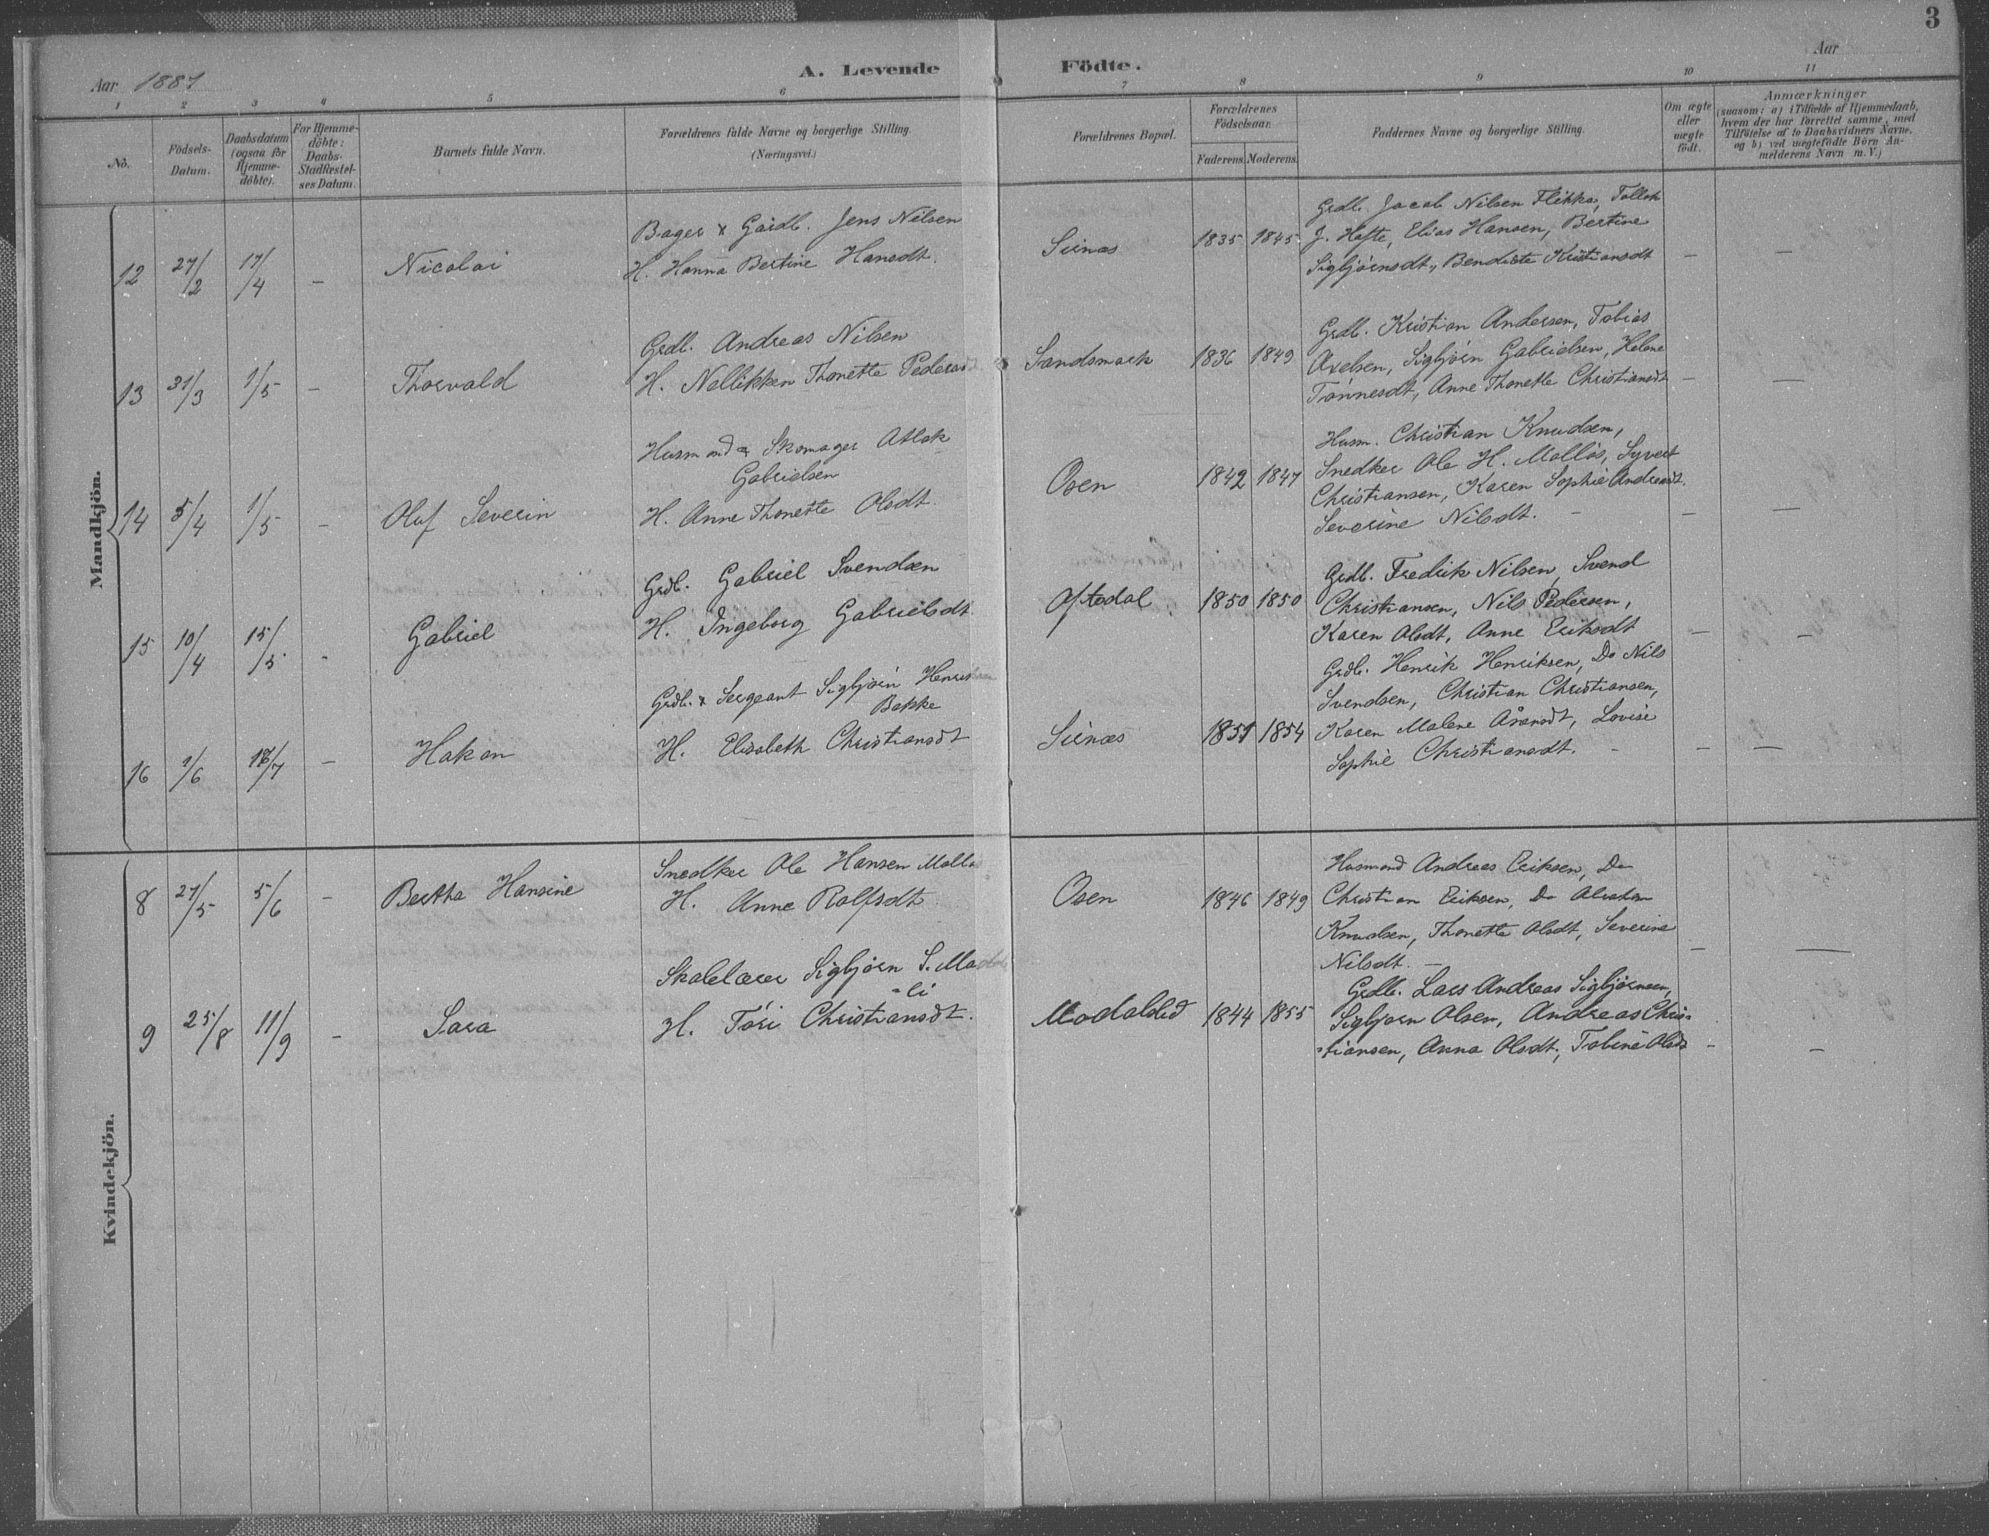 3
Aar 1887
A. Levende Födte.
Aar
1 2 3 4 5 6 7 8 9 10 11
No.
Födsels-Datum.
Daabsdatum (ogsaa för Hjemme-döbte).
For Hjemme-döbte: Daabs-Stadfæstel-ses Datum.
Barnets fulde Navn.
Forældrenes fulde Navne og borgerlige Stilling.
(Næringsvei.)
Forældrenes Bopæl.
Forældrenes Födselsaar.
Faderens. Moderens.
Faddernes Navne og borgerlige Stilling.
Om ægte eller uægte födt.
Anmærkninger
(saasom: a) i Tilfælde af Hjemmedaab, hvem der har forrettet samme, med Tilföielse af to Daabsvidners Navne, og b) ved uægtefödte Börn An-melderens Navn m. V.)
Mandkjön.
Grdb. Jacob Nilsen Flikka, Tollak
Bager & Gaidb. Jens Nilsen
Sirnæs 1835 1845 J. Hafte, Elias Hansen, Bertine
12 27/2 17/4 – Nicolai H. Hanna Bertine Hansdt.
Sigbjörnsdt., Bendicte Kristiansdt – –
Grdb. Kristian Andersen, Tobias
Grdb. Andreas Nilsen
Sandsmark 1836 1849 Axelsen, Sigbjörn Gabrielsen, Helene
13 31/3 1/5 – Thorvald H. Nellikken Thonette Pedersdt
Tönnesdt, Anne Thonette Christiansdt – –
Husm. Christian Knudsen,
Husmand & Skomager Atlak
Gabrielsen
Osen 1842 1847 Snedker Ole H. Mollös, Syvert
Christiansen, Karen Sophie Andreasdt.
14 5/4 1/5 – Oluf Severin H. Anne Thonette Olsdt.
Severine Nilsdt. – – –
Grdb. Fredrik Nilsen, Svend
Grdb. Gabriel Svendsen
Oftedal 1850 1850 Christiansen, Nils Pedersen,
15 10/4 15/5 - Gabriel H. Ingeborg Gabrielsdt
Karen Olsdt, Anne Eriksdt – –
Grdb. Henrik Henriksen, Do Nils
Grdb. & Sergeant Sigbjörn Henriksen
Bakke
Svendsen, Christian Christiansen,
Sirnæs 1851 1854 Karen Malene Åsensdt, Lovise
16 1/6 17/7 – Hakon H. Elisabeth Christiansdt
Sophie Christiansdt. - – –
Kvindekjön.
Snedker Ole Hansen Mollö
Husmand Andreas Eriksen, Do
8 27/5 5/6 – Bertha Hansine H. Anne Rolfsdt
Osen 1846 1849 Christian Eriksen, Do Abraham
Knudsen, Thonette Olsdt, Severine
Nilsdt. – – –
Skolelærer Sigbjörn S. Moda
-li
Grdb. Lars Andreas Sigbjörnsen,
9 25/8 11/9 – Sara H. Töri Christiansdt.
Modalslid 1844 1855 Sigbjörn Olsen, Andreas Chris-
-tiansen, Anna Olsdt., Tobine Olsdt – –